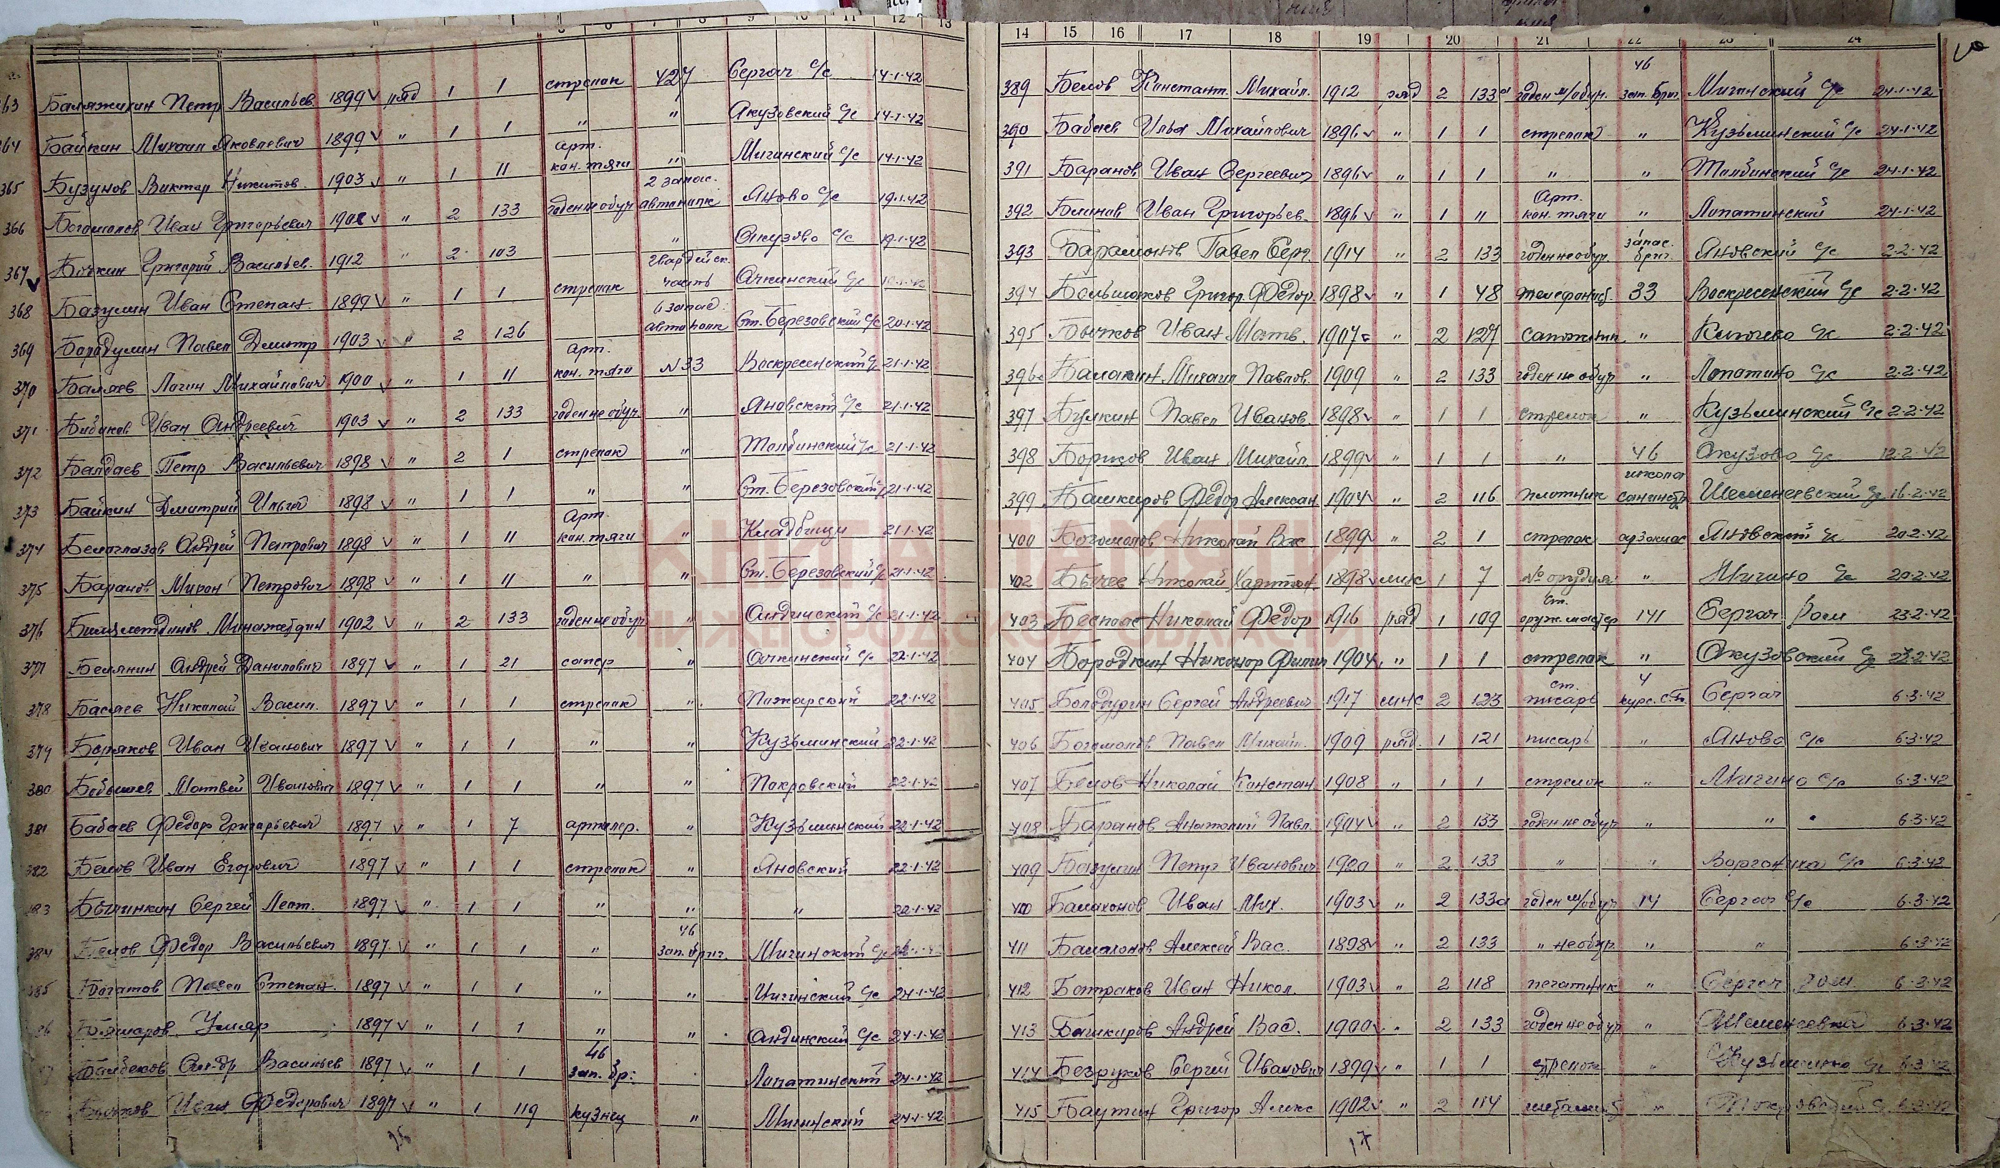 14 15 16 17 18 19 20 21 22 23 24
363 Баляжихин Петр Васильев 1899 ряд 1 1 стрелок 427 Сергач с/с 14-1-42
364 Байкин Михаил Яковлевич 1899 " 1 1 " " Акузовский с/с 14-1-42
365 Бузунов Виктор Никитов. 1903 " 1 11 арт. кон. тяги " Мигинский с/с 14-1-42
366 Богомолов Иван Григорьевич 1908 " 2 133 годен не обуч 2 запас. автополк Яново с/с 19-1-42
367 Бочкин Григорий Васильев. 1912 " 2 103 " Акузово с/с 19-1-42
368 Базулин Иван Степан. 1899 " 1 1 стрелок гвардейск. часть Ачкинский с/с
369 Бородулин Павел Дмитр 1903 " 2 126 6 запас. автополк Ст. Березовский с/с 20-1-42
370 Баляев Логин Михайлович 1900 " 1 11 арт. кон. тяги N 33 Воскресенский с/с 21-1-42
371 Бибиков Иван Андреевич 1903 " 2 133 годен не обуч " Яновский с/с 21-1-42
372 Балдаев Петр Васильевич 1898 " 2 1 стрелок " Толбинский с/с 21-1-42
373 Байкин Дмитрий Ильич 1898 " 1 1 " " Ст. Березовский с/с 21-1-42
374 Белоглазов Андрей Петрович 1898 " 1 11 Арт. кон. тяги " Кладбищи 21-1-42
375 Баранов Мирон Петрович 1898 " 1 11 " " Ст. Березовский с/с 21-1-42
376 1902 " 2 133 годен не обуч " Андинский с/с 21-1-42
377 Белянин Андрей Данилович 1897 " 1 21 сапер " Ачкинский с/с 22-1-42
378 Басяев Николай Васил. 1897 " 1 1 стрелок " Пожарский 22-1-42
379 Боряков Иван Иванович 1897 " 1 1 " " Кузьминский 22-1-42
380 Бобышев Матвей Иванович 1897 " 1 1 " " Покровский 22-1-42
381 Бабаев Федор Григорьевич 1897 " 1 7 артилер. " Кузьминский 22-1-42
382 Белов Иван Егорович 1897 " 1 1 стрелок " Яновский 22-1-42
383 Сергей 1897 " 1 1 " " " 22-1-42
384 Белов Федор Васильевич 1897 " 1 1 " 46 зап. бриг. Мигинский с/с
385 Богатов Павел Степан. 1897 " 1 1 " " с/с 24-1-42
386 Умяр 1897 " 1 1 " " Андинский с/с 24-1-42
Васильев 1897 " 1 1 46 зап. бр. Лопатинский 24-1-42
Бычков Иван Федорович 1897 " 1 119 кузнец " Мигинский 24-1-42
389 Белов Констант. Михайл. 1912 ряд 2 133а годен м/обуч. 46 зап. бриг Мигинский с/с 24-1-42
390 Бабаев Илья Михайлович 1896 " 1 1 стрелок " Кузьминский с/с 24-1-42
391 Баранов Иван Сергеевич 1896 " 1 1 " " Толбинский с/с 24-1-42
392 Блинов Иван Григорьев. 1896 " 1 11 Арт. кон. тяги " Лопатинский 24-1-42
393 Павел Серг. 1914 " 2 133 годен не обуч. запас. бриг. Яновский с/с 2-2-42
394 Большаков Григор. Федор. 1898 " 1 48 телефонист. 33 Воскресенский с/с 2-2-42
395 Бычков Иван Матв. 1907 " 2 127 сапожник " с/с 2-2-42
396 Балакин Михаил Павлов. 1909 " 2 133 годен не обуч " Лопатино с/с 2-2-42
397 Булкин Павел Иванов. 1898 " 1 1 стрелок " Кузьминский с/с 2-2-42
398 Борисов Иван Михайл. 1899 " 1 1 " 46 Акузово с/с 12-2-42
399 Башкиров Федор Алексан. 1904 " 2 116 плотник школа Шеменеевский с/с 16-2-42
400 Богомолов Николай Вас 1899 " 2 1 стрелок арзамас Яновский с/с 20-2-42
402 Бычев Николай Харитон. 1898 млк 1 7 № орудия " Мигино с/с 20-2-42
403 Беспалов Николай Федор 1916 ряд 1 109 ст. оруж. мастер 141 Сергач 23-2-42
404 Бородкин Никонор Филип 1904 " 1 1 стрелок " Акузовский с/с 23-2-42
405 Болодурин Сергей Андреевич 1917 млк 2 123 ст. писарь 4 курс. Сергач 6-3-42
406 Богомолов Павел Михайл. 1909 ряд. 1 121 писарь " Яново с/с 6-3-42
407 Белов Николай Констан. 1908 " 1 1 стрелок " Мигино с/с 6-3-42
408 Баранов Анатолий Павл. 1904 " 2 133 годен не обуч " " 6-3-42
409 Базулин Петр Иванович 1920 " 2 133 " " с/с 6-3-42
410 Балахонов Иван Мих. 1903 " 2 133а годен м/обуч 14 Сергач с/с 6-3-42
411 Балахонов Алексей Вас. 1898 " 2 133 " необуч. " " 6-3-42
412 Ботраков Иван Никол. 1903 " 2 118 печатник " Сергач 6-3-42
413 Башкиров Андрей Вас. 1900 " 2 133 годен не обуч " Шеменеевка 6-3-42
414 Безруков Сергей Иванович 1899 " 1 1 стрелок " Кузьмино с/с 6-3-42
415 Баутин Григор Алекс 1902 " 2 114 " 6-3-42
17
КНИГА ПАМЯТИ
НИЖЕГОРОДСКОЙ ОБЛАСТИ